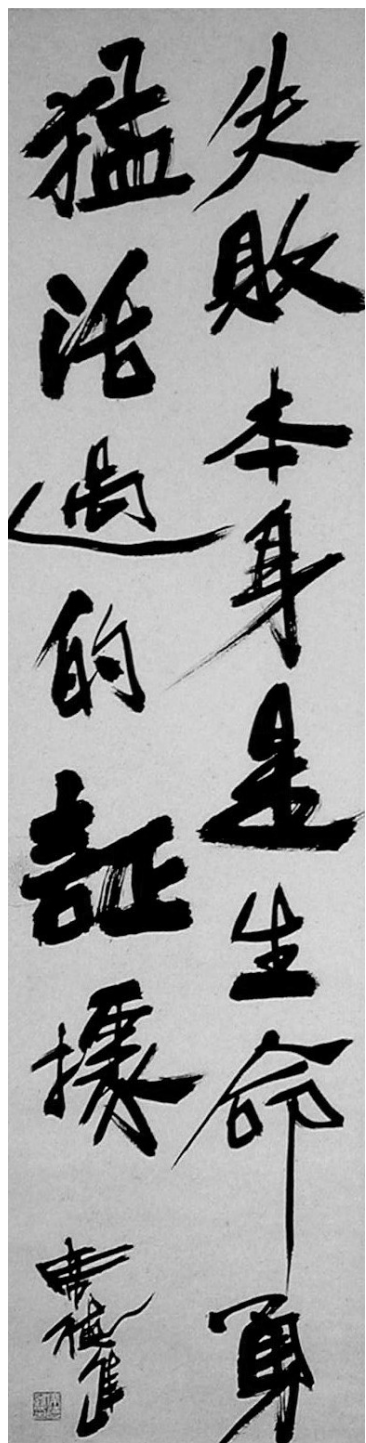 失敗本身是生命勇
猛活過的証據
席德進